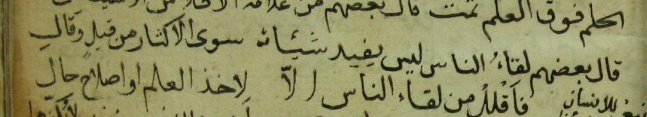 الحلم فوق العلم تمت قال بعضهم من علامة
قال بعضهم لقاءُ الناس ليس يفيد شيئا سوى الاكثار من قيل وقال
فاقلل من لقاء الناس الّا لاخذ العلم او اصلاح حال
للانسان